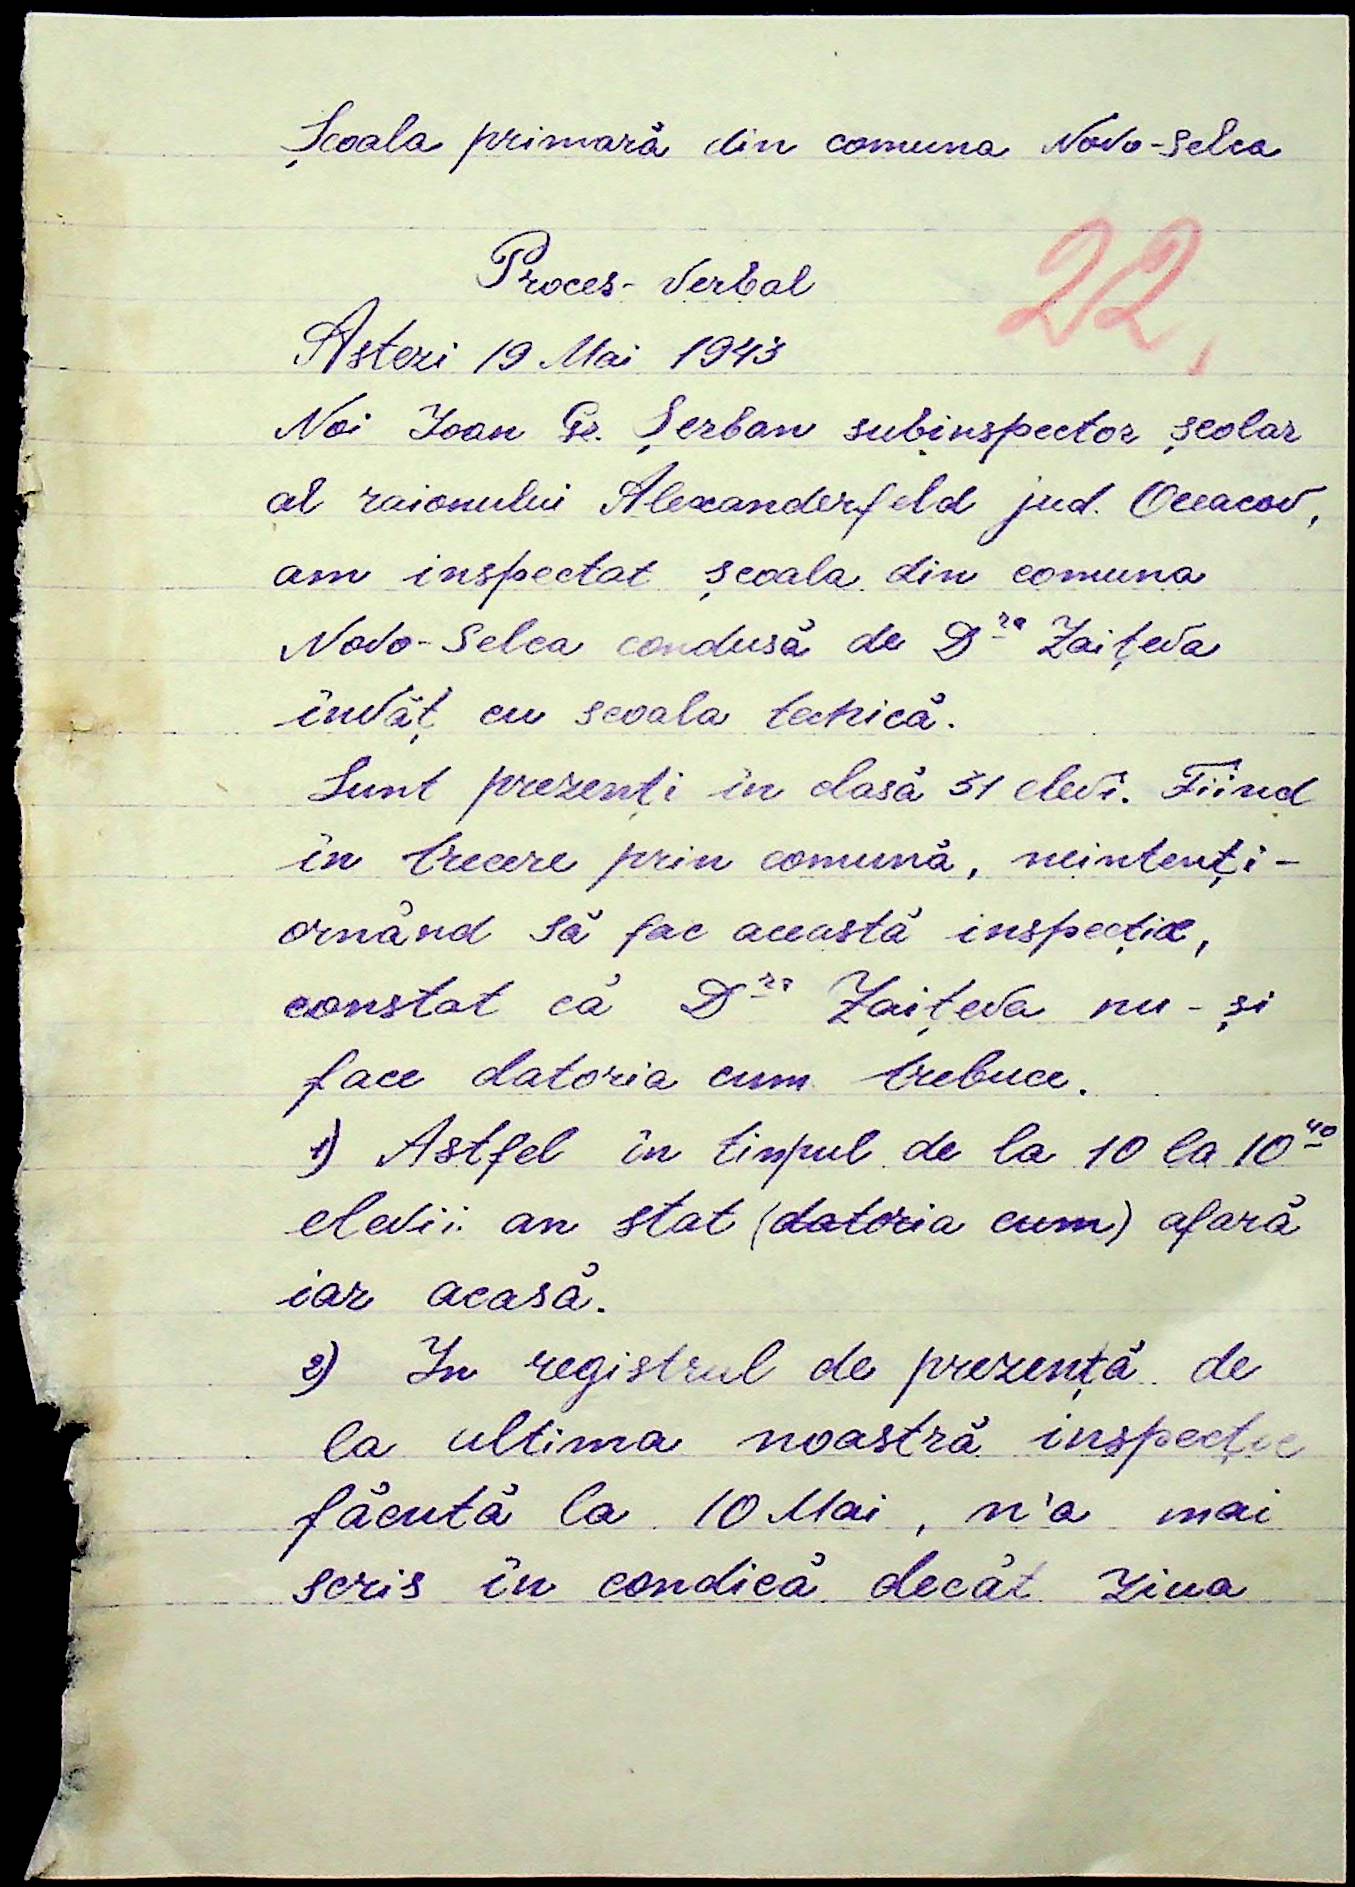 Școala primară din comuna Novo-Selca
22,
Proces-Verbal
Astezi 19 Mai 1943
Noi Ioan Gr. Șerban subinspector școlar
al raionului Alexanderfeld jud. Oceacov,
am inspectat școala din comuna
Novo-Selca condusă de D^ra Zaițeva
învăț cu scoala technică.
Sunt prezenți în clasă 31 elevi. Fiind
în trecere prin comună, neintenți-
ornând să fac această inspecție,
constat că D^ra Zaițeva nu-și
face datoria cum trebuce.
1) Astfel în timpul de la 10 la 10^40
elevii au stat (datoria cum) afară
iar acasă.
2) In registrul de prezență de
la ultima noastră inspecție
făcută la 10 Mai, n'a mai
scris în condică decât ziua